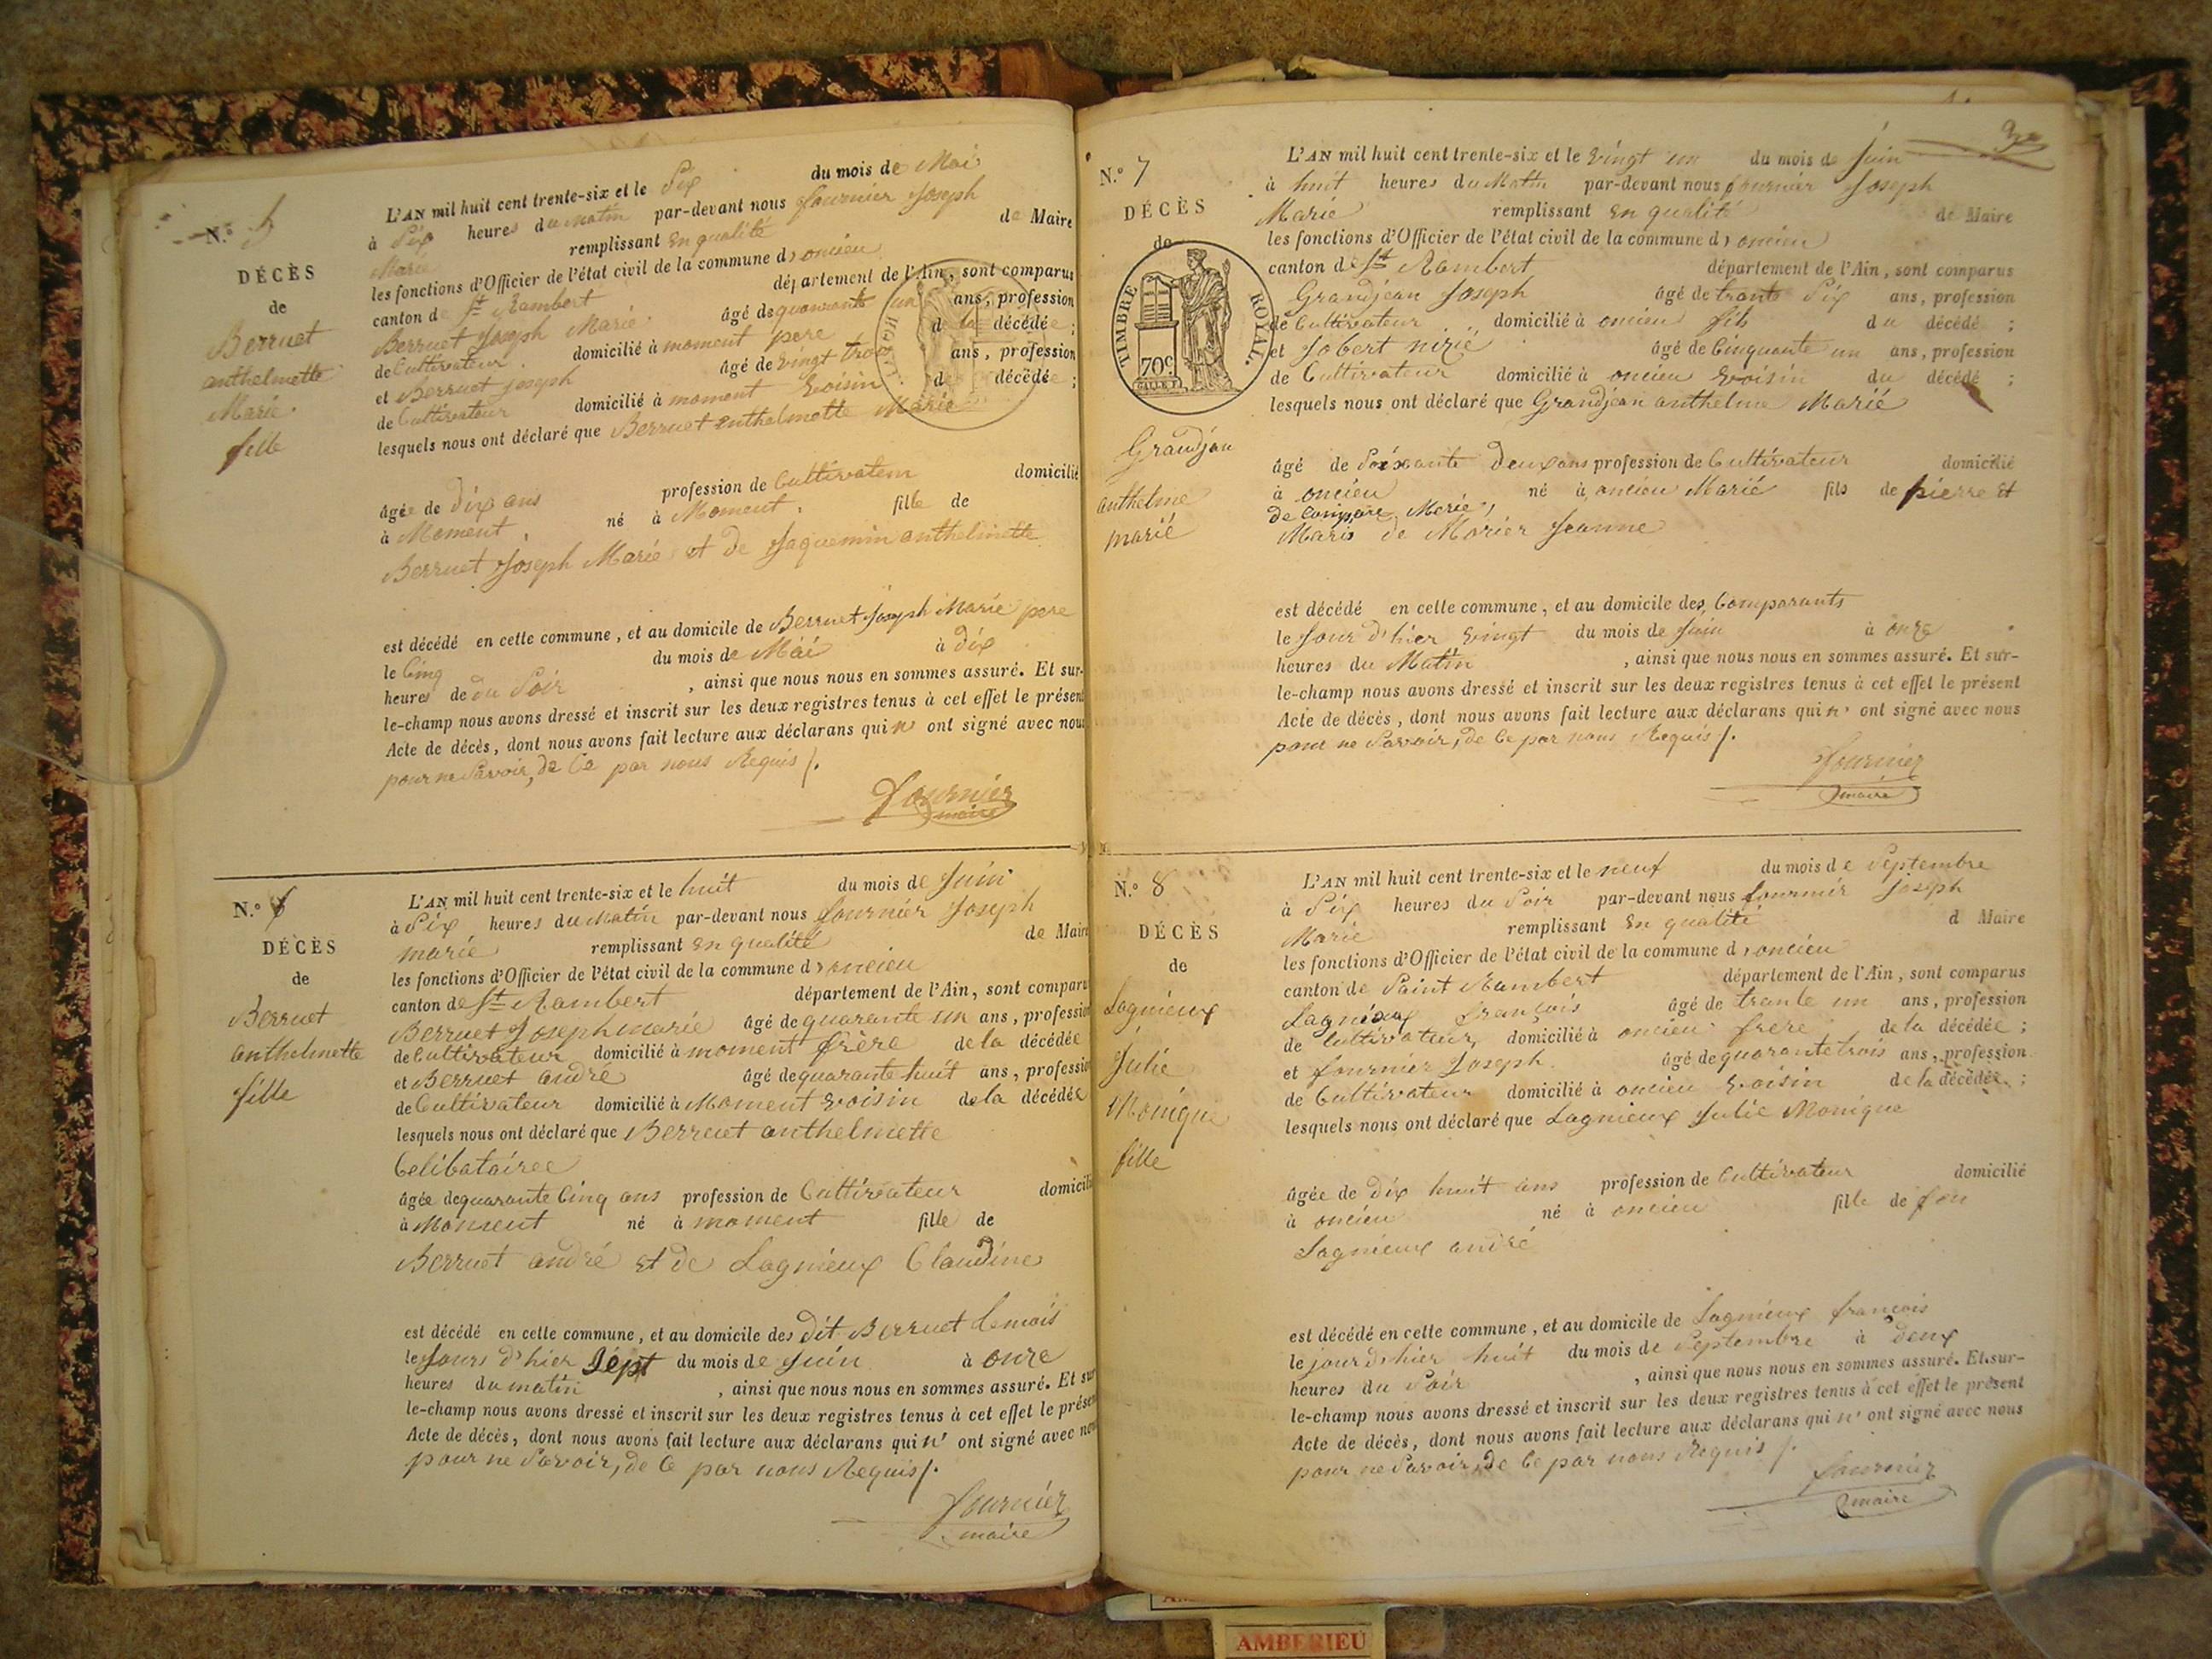 N.º 5
DÉCÈS
de
Berruet
anthelmette
Marie.
fille
L'AN mil huit cent trente-six et le Six du mois de Mai
à Six heures du matin par-devant nous fournier Joseph
Marie remplissant en qualité de Maire
les fonctions d'Officier de l'état civil de la commune d'oncieu
canton de St Rambert département de l'Ain, sont comparus
Berruet Joseph Marie âgé de quarante un ans, profession
de Cultivateur domicilié à moment pere de la décédée ;
et Berruet joseph âgé de vingt trois ans, profession
de Cultivateur domicilié à moment Voisin de décédée ;
lesquels nous ont déclaré que Berruet anthelmette Marie
âgée de dix ans profession de Cultivateur domicilié
à Moment né à Moment. fille de
Berruet Joseph Marie et de Jaquemin anthelmette
est décédé en cette commune, et au domicile de Berruet Joseph Marie pere
le Cinq du mois de Mai à dix
heures de du Soir , ainsi que nous nous en sommes assuré. Et sur-
le-champ nous avons dressé et inscrit sur les deux registres tenus à cet effet le présent
Acte de décès, dont nous avons fait lecture aux déclarans qui n' ont signé avec nous
pour ne Savoir, de Ce par nous Requis /.
Fournier
maire
N.º 6
DÉCÈS
de
Berruet
anthelmette
fille
L'AN mil huit cent trente-six et le huit du mois de Juin
à Six heures du matin par-devant nous fournier Joseph
marie remplissant en qualité de Maire
les fonctions d'Officier de l'état civil de la commune d'oncieu
canton de St Rambert département de l'Ain, sont comparu
Berruet Joseph marie âgé de quarante un ans, profession
de Cultivateur domicilié à moment frère de la décédée
et Berruet andré âgé de quarante huit ans, profession
de Cultivateur domicilié à Moment Voisin de la décédée
lesquels nous ont déclaré que Berruet anthelmette
Celibatairee
âgée de quarante Cinq ans profession de Cultivateur domicilié
à Moment né à moment fille de
Berruet andré et de Lagnieux Claudine
est décédé en cette commune, et au domicile des dit Berruet
le Jours d'hier Sept du mois de Juin à onze
heures du matin , ainsi que nous nous en sommes assuré. Et sur
le-champ nous avons dressé et inscrit sur les deux registres tenus à cet effet le présen
Acte de décès, dont nous avons fait lecture aux déclarans qui n' ont signé avec nou
pour ne Savoir, de Ce par nous Requis /.
fournier
maire
N.º 7
DÉCÈS
de
TIMBRE ROYAL.
70c
Grandjean
anthelme
marié
L'AN mil huit cent trente-six et le Vingt un du mois de Juin
à huit heures du Matin par-devant nous fournier Joseph
Marie remplissant en qualité de Maire
les fonctions d'Officier de l'état civil de la commune d'oncieu
canton de St Rambert département de l'Ain, sont comparus
Grandjean Joseph âgé de trante Six ans, profession
de Cultivateur domicilié à oncieu fils du décédé ;
et Jobert nizié âgé de Cinquante un ans, profession
de Cultivateur domicilié à oncieu Voisin du décédé ;
lesquels nous ont déclaré que Grandjean anthelme Marié
âgé de Soixante deux ans profession de Cultivateur domicilié
à oncieu né à oncieu Marié fils de pierre et
de Marie,
Maris de Morier Jeanne
est décédé en cette commune, et au domicile des Comparants
le Jour d'hier Vingt du mois de Juin à onze
heures du Matin , ainsi que nous nous en sommes assuré. Et sur-
le-champ nous avons dressé et inscrit sur les deux registres tenus à cet effet le présent
Acte de décès, dont nous avons fait lecture aux déclarans qui n' ont signé avec nous
pour ne Savoir, de Ce par nous Requis /.
fournier
maire
N.º 8
DÉCÈS
de
Lagnieux
Julie
Monique
fille
L'AN mil huit cent trente-six et le neuf du mois de Septembre
à Six heures du Soir par-devant nous fournier Joseph
Marie remplissant en qualité d Maire
les fonctions d'Officier de l'état civil de la commune d'oncieu
canton de Saint Rambert département de l'Ain, sont comparus
Lagnieux françois âgé de trante un ans, profession
de Cultivateur domicilié à oncieu frere de la décédée ;
et fournier Joseph âgé de quarante trois ans, profession
de Cultivateur domicilié à oncieu Voisin de la décédée ;
lesquels nous ont déclaré que Lagnieux Julie Monique
âgée de dix huit ans profession de Cultivateur domicilié
à oncieu né à oncieu fille de feu
Lagnieux andré
est décédé en cette commune, et au domicile de Lagnieux francois
le jour d'hier huit du mois de Septembre à deux
heures du Soir , ainsi que nous nous en sommes assuré. Et sur-
le-champ nous avons dressé et inscrit sur les deux registres tenus à cet effet le présent
Acte de décès, dont nous avons fait lecture aux déclarans qui n' ont signé avec nous
pour ne Savoir, de Ce par nous Requis /.
fournier
maire
AMBERIEU